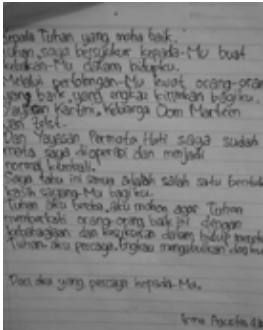 kepada Tuhan yang maha baik.
Tuhan, saya bersyukur kepada-Mu buat
kebaikan-Mu dalam hidupku.
Melalui pertolongan-Mu lewat orang-oran
yang baik yang engkau kirimkan bagiku.
Yayasan Kartini, Keluarga Dom Marteen
dan
Dan Yayasan Permata Hati saya sudah
mata saya dioperasi dan menjadi
normal kembali.
Saya tahu ini semua adalah salah satu bentuk
kasih sayang-Mu bagiku.
Tuhan aku berdoa, aku mohon agar Tuhan
memberkati orang-orang baik ini dengan
kebahagiaan dan kesuksesan dalam hidup
Tuhan aku percaya, Engkau mengabulkan
Dari aku yang percaya kepada-Mu.